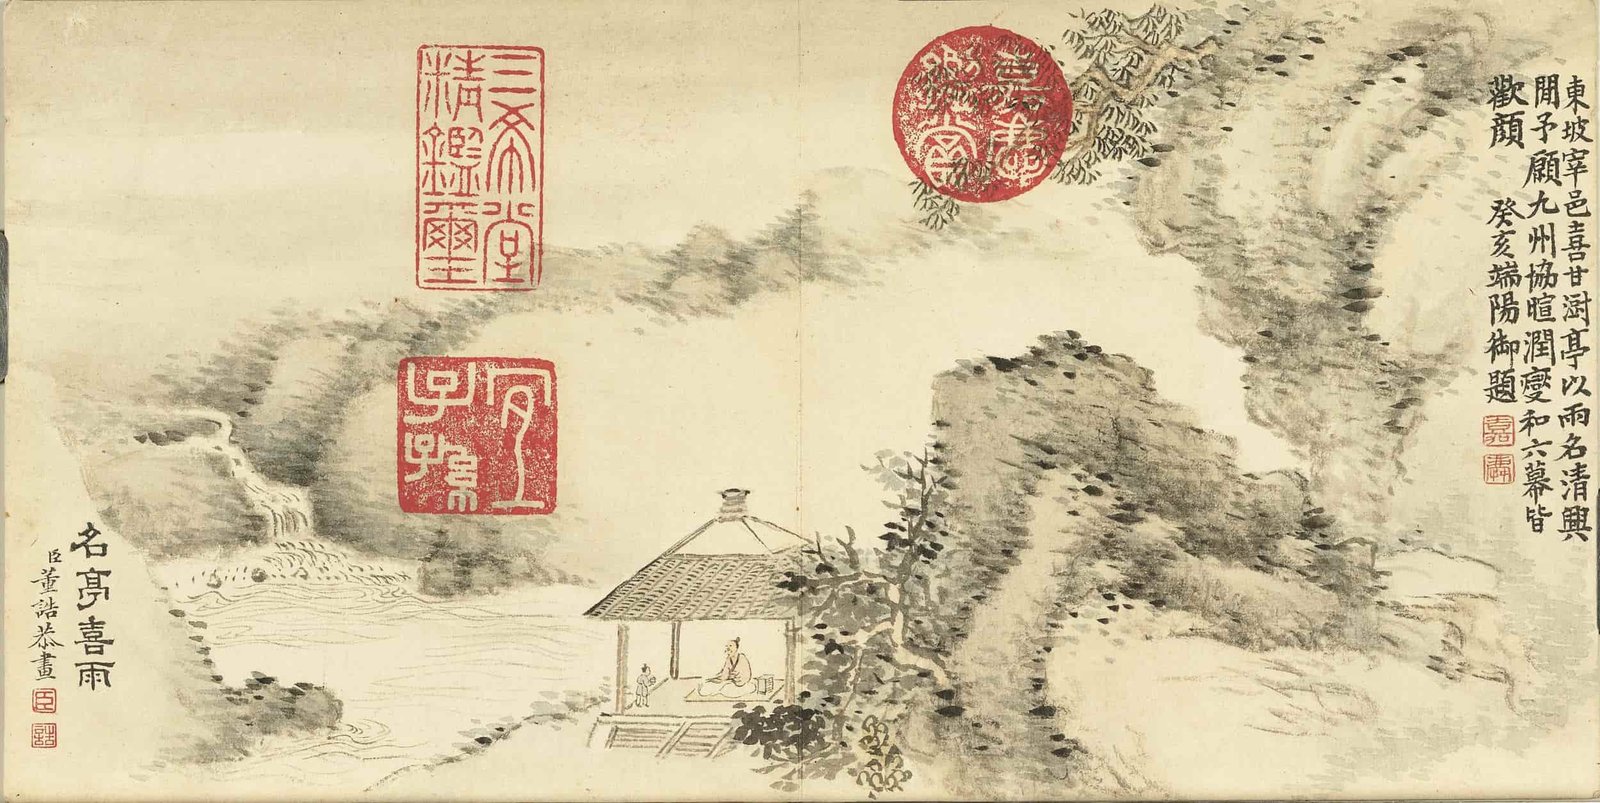 東坡宰邑喜甘澍亭以雨名清興
閒予願九州協暄潤變和六幕皆
歡顏 癸亥端陽御題
嘉
慶
三希堂
精鑑璽
宜
子孫
名亭喜雨
臣董誥恭畫
臣
誥